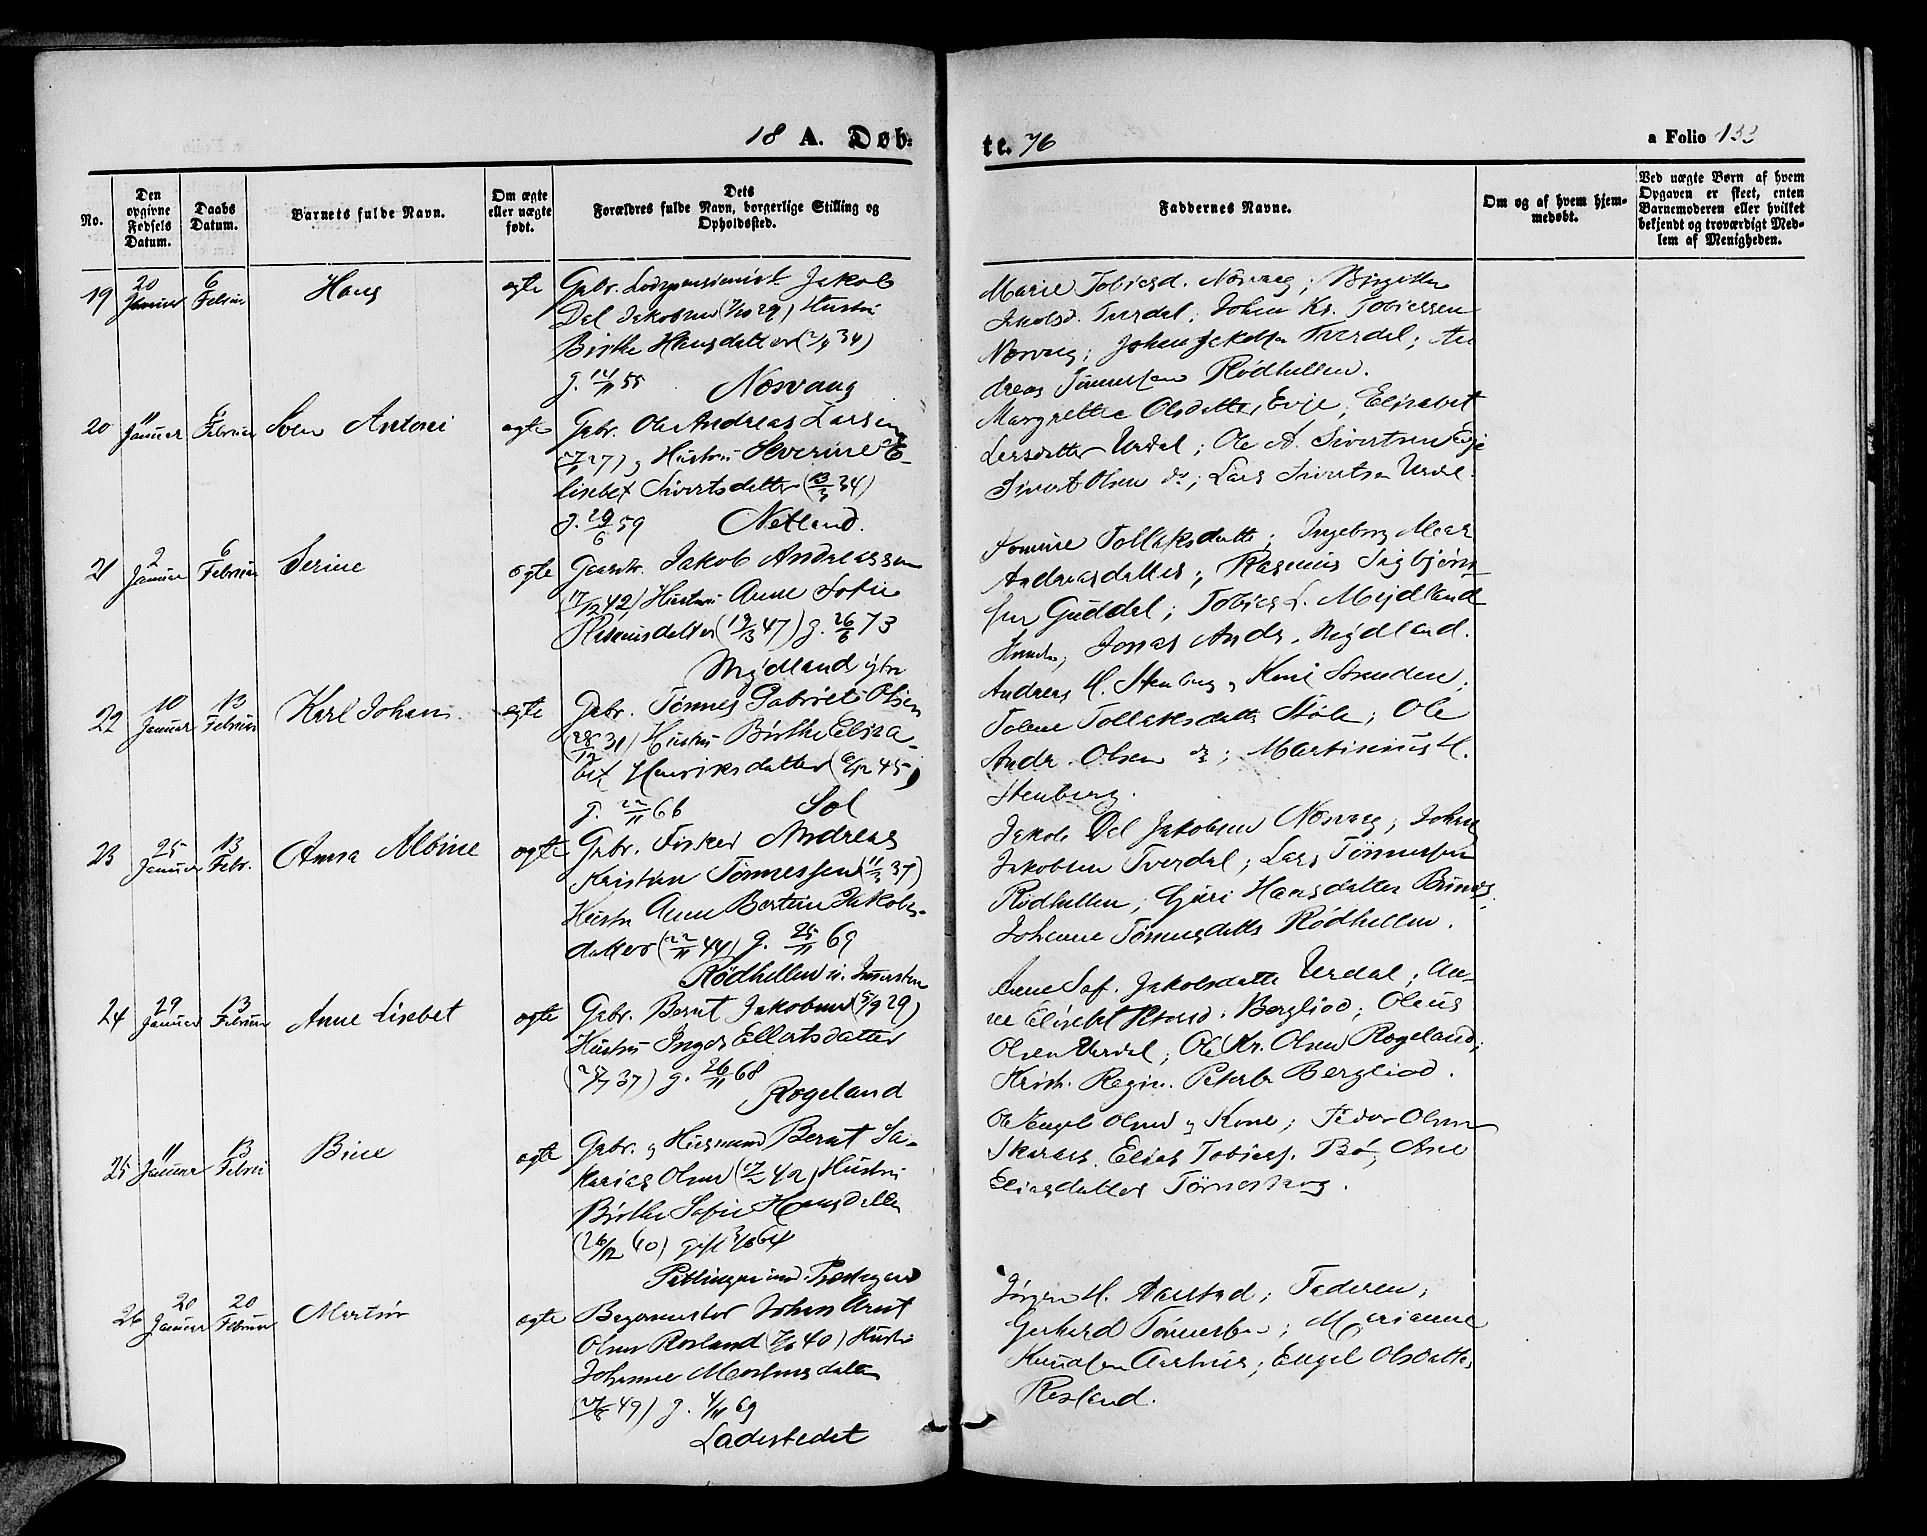 18 A. Døb-
te. 76
a Folio 133
No.
Den opgivne Fødsels Datum.
Daabs Datum.
Barnets fulde Navn.
Om ægte eller uægte født.
Dets Forældres fulde Navn, borgerlige Stilling og Opholdssted.
Faddernes Navne.
Om og af hvem hjemmedøbt.
Ved uægte Børn af hvem Opgaven er skeet, enten Barnemoderen eller hvilket bekjendt og troværdigt Medlem af Menigheden.
19
20 Januar
6 Februar
Hans
ægte
Gbr. Lodspensionist Jakob
Del Jakobsen Hustru
Birthe Hansdatter
g. 14/11 55 Nesvaag
Marie Tobiasd. Nesvaag; Birgitte
Jakobsd. Tverdal; Johan Kr. Tobiassen
Nesvaag; Johan Jakobsen Tverdal; An
dreas Tønnessen Rødhellen.
20
11 Januar
6 Februar
Sven Antoni
ægte
Gbr. Ole Andreas Larsen
Hustru Severine E-
lisebet Sivertsdatter (13/3 34)
g. 29/6 59 Netland.
Margrethe Olsdatter Evje; Elisabet
Larsdatter Urdal; Ole A. Sivertsen Evje
Sivert Olsen do; Lars Sivertsen Urdal.
21
2 Januar
6 Februar
Serine
ægte
Gaardb. Jakob Andreassen
(17/12 42) Hustru Anne Sofie
Rasmusdatter (19/3 47) g. 26/6 73
Mydland ytre
Tomine Tollaksdatter; Ingeborg Mar
Andreasdatter; Rasmus Sigbjørn
sen Guddal; Tobias L. Mydland
Hustru; Jonas Andr. Mydland.
22
10 Januar
13 Februar
Karl Johan
ægte
Gbr. Tønnes Gabriel Olsen
(28/12 31) Hustru Birthe Elisa-
bet Henriksdatter
g. 22/11 66 Sol
Andreas H. Stenberg, Kone Stranden;
Tolene Tollaksdatter Støle; Ole
Andr. Olsen do; Martinius H.
Stenberg.
23
25 Januar
13 Febr.
Anna Albine
ægte
Gbr. Fisker Andreas
Kristian Tønnessen (11/3 37)
Hustru Anne Bertine Jakobs-
datter (22/11 44) g. 25/11 69
Rødhellen
Jakob Del Jakobsen Nesvaag; Johan
Jakobsen Tverdal; Lars Tønnessen
Rødhellen; Guri Hansdatter
Johanne Tønnesdatter Rødhellen.
24
29 Januar
13 Februar
Anne Lisebet
ægte
Gbr. Bernt Jakobsen (5/9 29)
Hustru Inger Ellertsdatter
g. 26/11 68
Rogeland
Anne Sof. Jakobsdatter Urdal; An-
ne Elisebet Petersd. Bergliod; Olaus
Olsen Urdal; Ole Kr. Olsen Rogeland;
Krist. Regin. Petersdr Bergliod.
25
11 Januar
13 Februar
Bine
ægte
Gbr. og Husmand Bernt Sa-
karias Olsen (17/2 42) Hustru
Birthe Sofie Hansdatter
(26/12 40) gift
Ole Engel Olsen og Kone; Peder Olsen
Skaraas. Elias Tobiass. Bø; Ane
Eliasdatter Tønnesberg.
26
20 Januar
20 Februar
Martin
ægte
Bagermester Johan Arnt
Olsen Rosland Hustru
Johanne Mortensdatter
g. 4/11 69
Ladestedet
Jørgen H. Aarstad; Faderen;
Gerhard Tønnessen; Marianne
Knudsen Aarhus; Engel Olsdatter
Rosland.